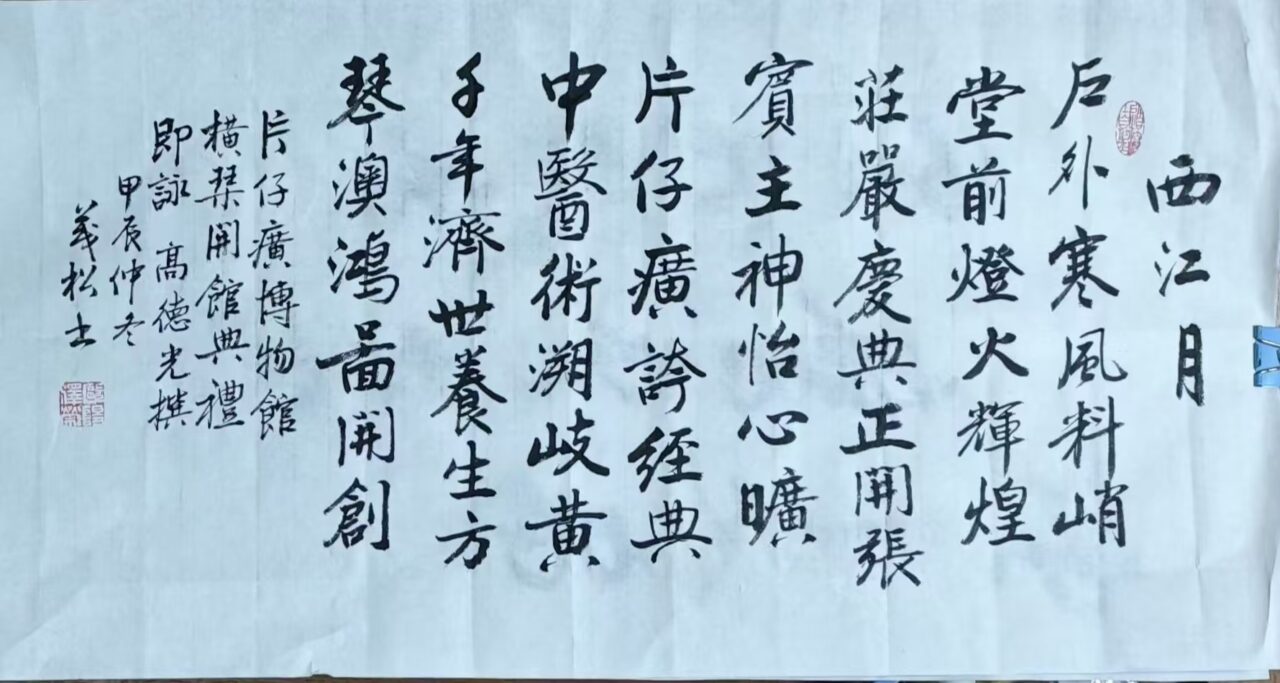 西江月
戶外寒風料峭
堂前燈火輝煌
莊嚴慶典正開張
賓主神怡心曠
片仔癀誇經典
中醫術溯岐黃
千年濟世養生方
琴澳鴻圖開創
片仔癀博物館
橫琴開館典禮
即詠 高德光撰
甲辰仲冬
義松書